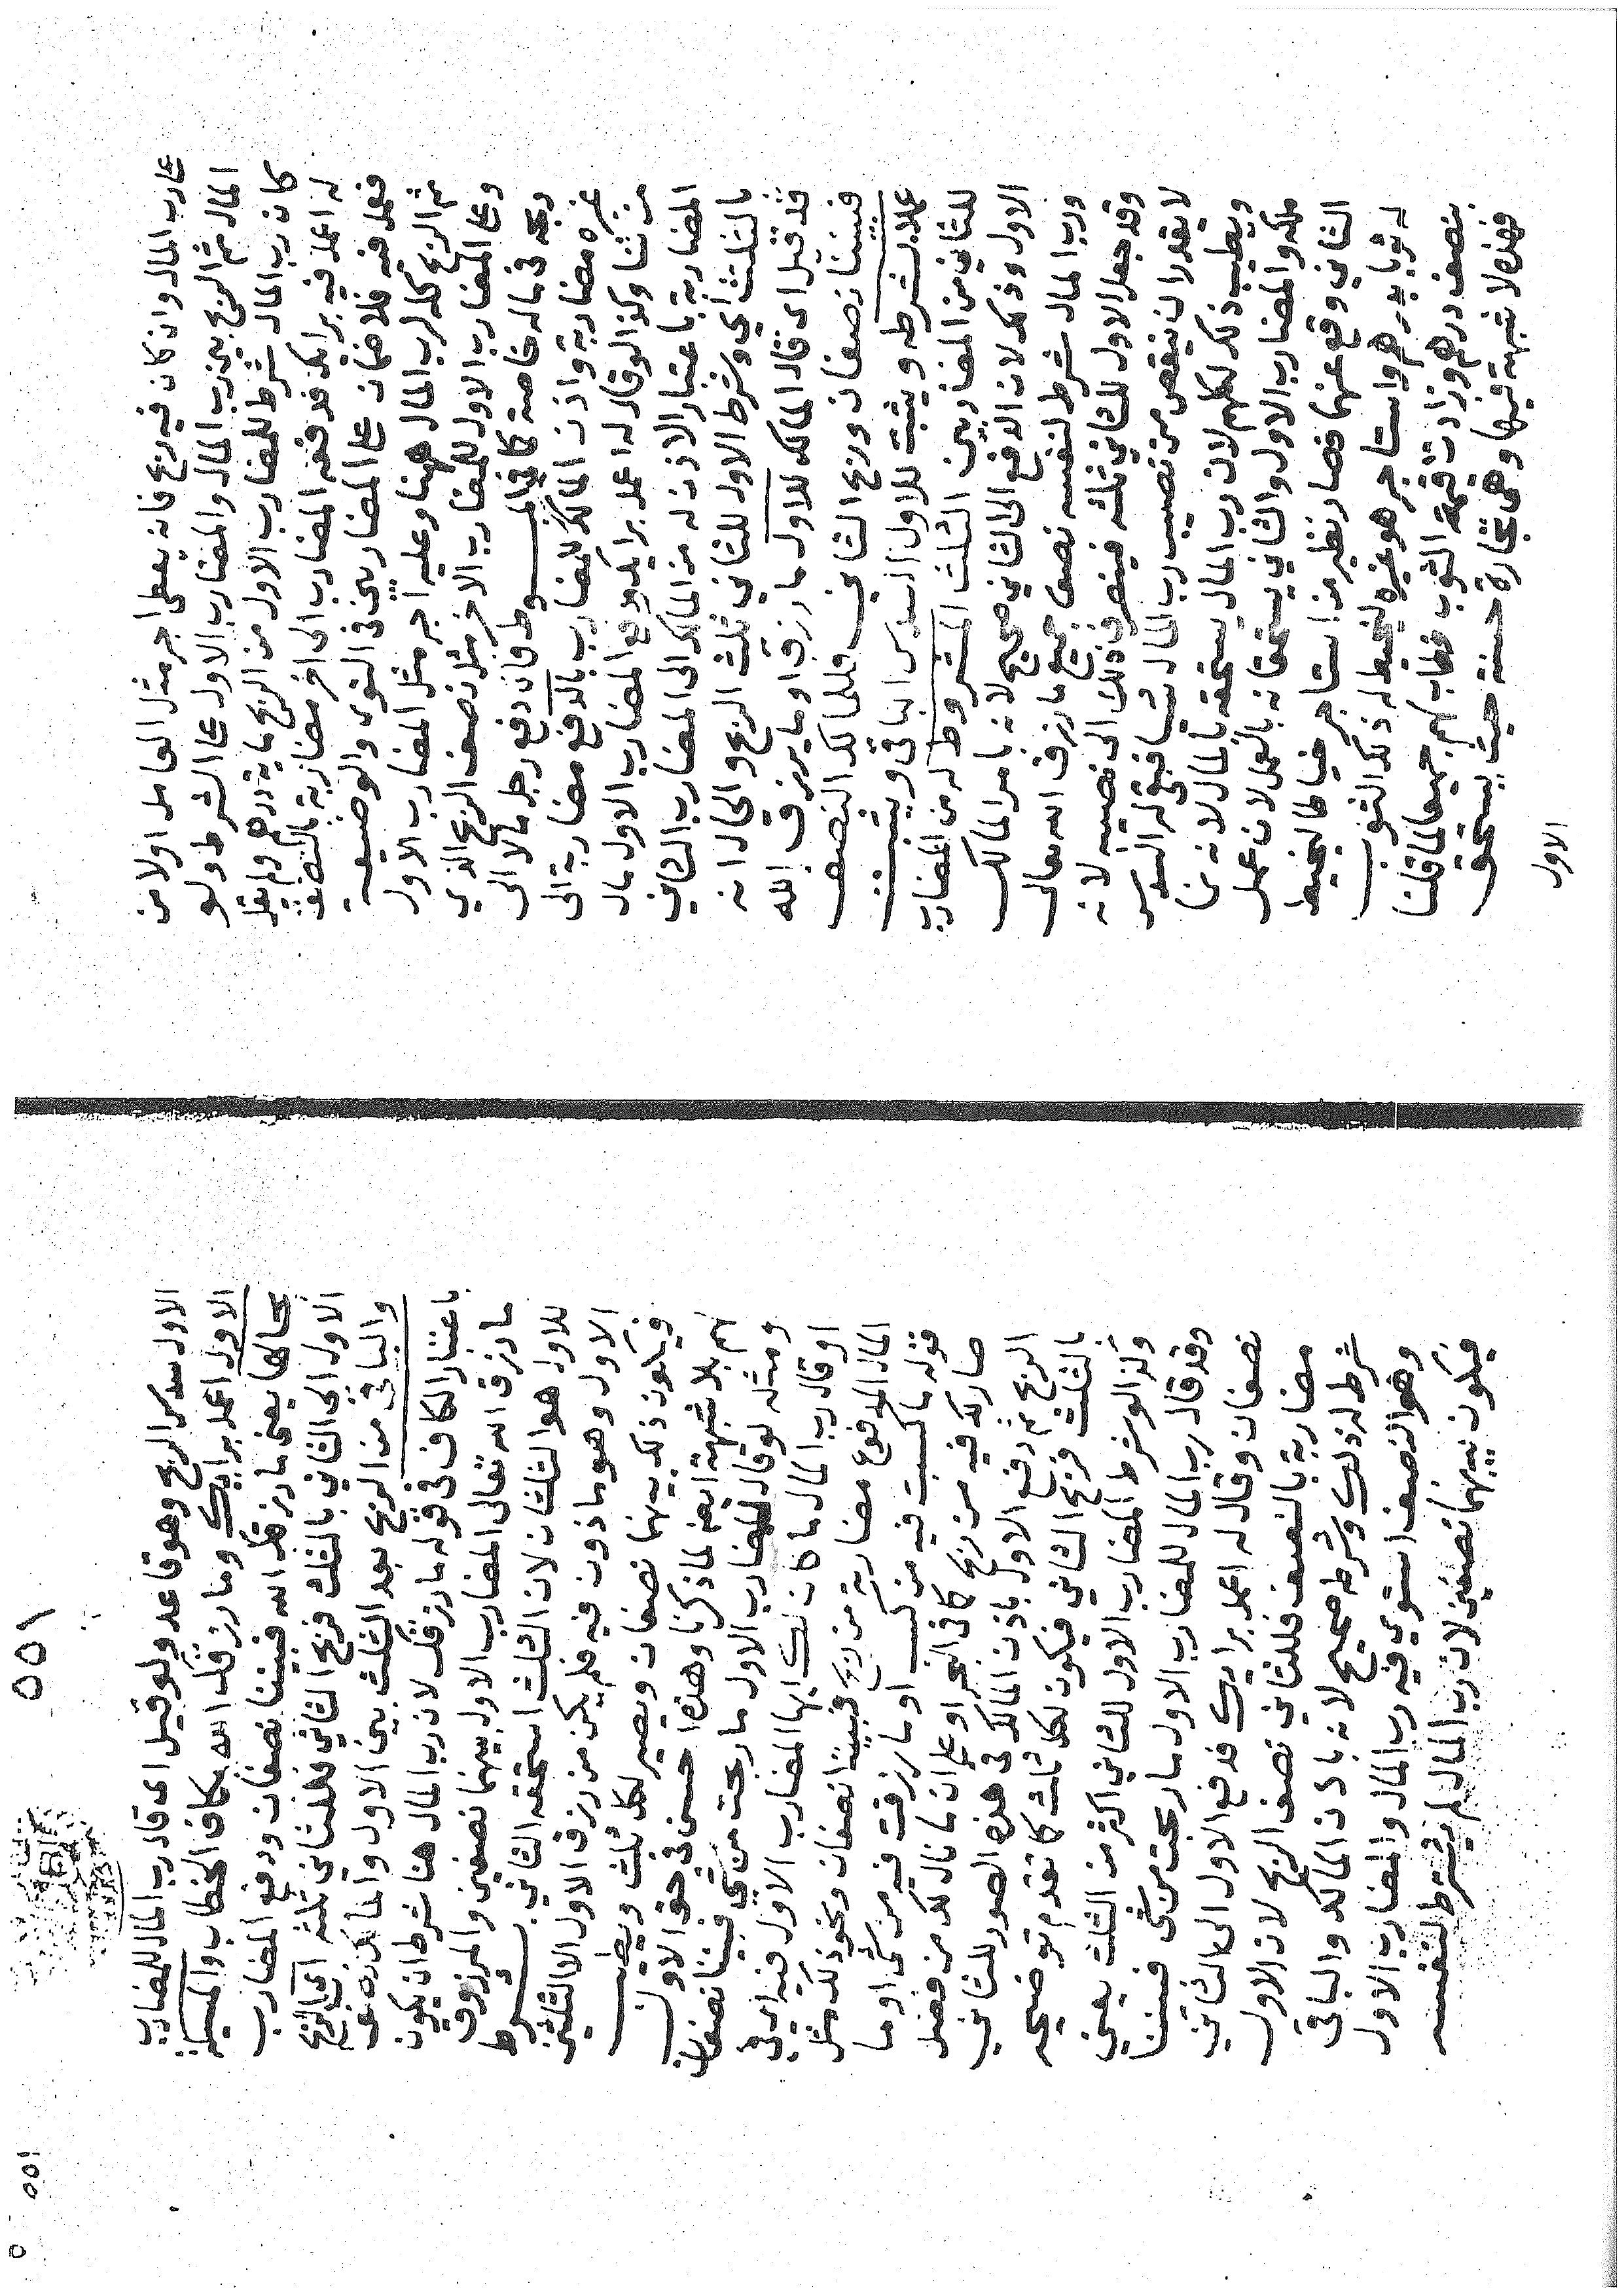 على رب المال وان كان فيه ربح فانه يعطى اجر مثل العامل اولا من
المال ثم الربح بين رب المال والمضارب الاول على الشرط ولو
كان رب المال شرط للمضارب الاول من الربح ماية درهم ولم يقل
له اعمل فيه برايك فدفعه المضارب الى اخر مضاربة بالنصف
فعمل فيه فلا ضمان على المضاربين في التوى والوضيعة
ثم الربح كله لرب المال ههنا وعليه اجر مثل المضارب الاول
وعلى المضارب الاول للمضارب الاخر مثل نصف الربح الذي
ربحه في ماله خاصة كما في المبسوط فان دفع رجل مالا الى
غيره مضاربة واذن المالك للمضارب بالدفع مضاربة الى
من شا وكذا لو قال له اعمل برايك ودفع المضارب الاول مال
المضاربة باعتبار الاذن له من المالك الى المضارب الثاني
بالثلث اي وشرط الاول للثاني ثلث الربح والحال انه
قد قيل اى قال المالك للاول ما رزق او ما يرزق الله
فبيننا نصفان وربح الثاني فللمالك النصف
عملا بشرطه ويثبت للاول السدس الباقي ويثبت
للثاني من المضاربين الثلث المشروط له من المضارب
الاول وذلك لان الدفع الى الثاني صحيح لانه بامر المالك
ورب المال شرط لنفسه نصف جميع ما رزق الله تعالى
وقد جعل الاول للثاني ثلثه فينصرف ذلك الى نصيبه لانه
لا يقدر ان ينقص من نصيب رب المال شيا فبقي له السدس
ويطيب ذلك لكلهم لان رب المال يستحقه بالمال لانه نما
ملكه والمضارب الاول والثاني يستحقانه بالعمل لان عمل
الثاني وقع عنهما فصار نظير من استاجر خياطا ليخيط
له ثوبا بدرهم واستاجر هو غيره ليخيط له ذلك الثوب
بنصف درهم وزادت قيمة الثوب فطاب لهم جميعا لما قلنا
فهذه لا شبهة فيها وهي تجارة حسنة حيث يستحق
الاول
١٥٥
١٥٥
الاول سدس الربح وهو قاعد ولو قيل اى قال رب المال للمضارب
الاول اعمل برايك وما رزقك الله بكاف الخطاب والمسيلة
بحالها يعنى ما رزقك الله فبيننا نصفان ودفع المضارب
الاول الى الثاني بالثلث فربح الثاني فللثاني ثلثه اى الربح
والباقي من الربح بعد الثلث بين الاول والمالك
باعتبار الكاف في قوله ما رزقك لان رب المال هنا شرط ان يكون
ما رزق الله تعالى المضارب الاول بينهما نصفين والمرزوق
للاول هو الثلثان لان الثلث استحقه الثاني بشرط
الاول وهو ماذون فيه فلم يكن من رزق الاول الا الثلثين
فيكون ذلك بينهما نصفان ويصير لكل ثلث ويطيب
لهم بلا شبهة ايضا لما ذكرنا وهذا حسن في حق الاول
ومثله لو قال للمضارب الاول ما ربحت من شي فبيننا نصفان
او قال رب المال ما كان لك ايها المضارب الاول فيه اي في
المال المدفوع مضاربة من ربح فبيننا نصفان ونحو ذلك مثل
قوله ما كسبت فيه من كسب او ما رزقت فيه من شى او ما
صار لك فيه من ربح كما في البحر او على ان ما نال لك من فضل
الربح ثم دفع الاول باذن المالك في هذه الصور للثاني
بالثلث فربح الثاني فيكون لكل ثلث كما تقدم توضيحه
وكذا لو شرط المضارب الاول للثاني اكثر من الثلث يعني
وقد قال رب المال للمضارب الاول ما ربحت من شى فبيننا
نصفان وقال له اعمل برايك فدفع الاول الى الثاني
مضاربة بالنصف فللثاني نصف الربح لان الاول
شرط له ذلك وشرطه صحيح لانه باذن المالك والباقي
وهو النصف استوي فيه رب المال والمضارب الاول
فيكون بينهما نصفين لان رب المال لم يشترط لنفسه